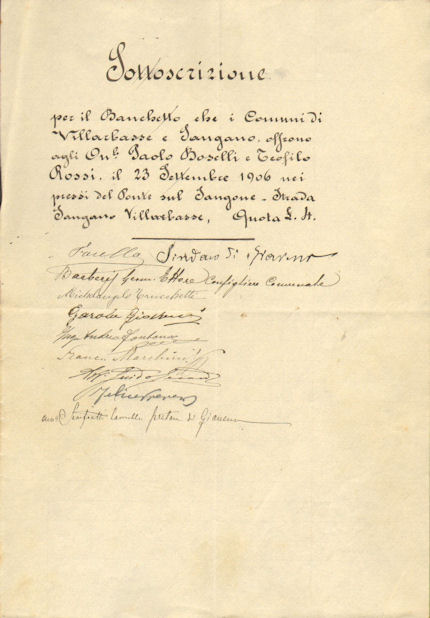 Sottoscrizione
per il Banchetto che i Comuni di
Villarbasse e Sangano, offrono
agli On.li Paolo Boselli e Teofilo
Rossi, il 23 Settembre 1906 nei
pressi del Ponte sul Sangone - Strada
Sangano Villarbasse, Quota L. 4.
Sindaco di Giaveno
Barberis Ettore Consigliere Comunale
Michelangelo
Garola Giovanni
Ing. Andrea Fontana
Franco Marchini
Guido
Camillo pretore di Giaveno